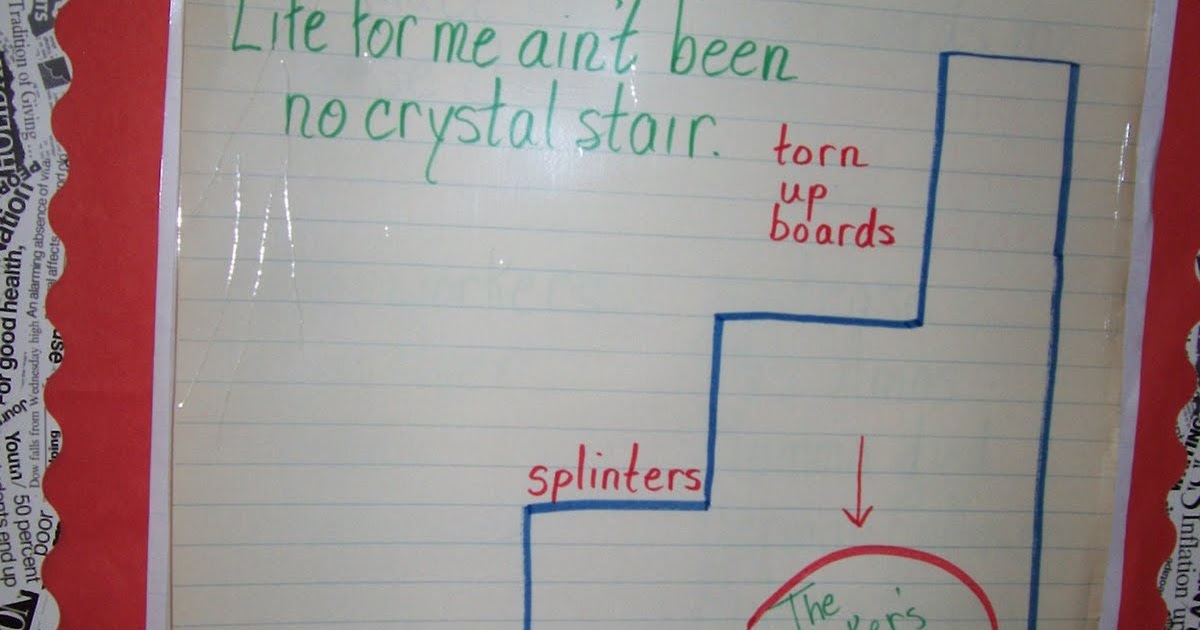 Life for me ain't been
no crystal stair.
torn
up
boards
splinters
The
Tradition of Giving...
For good health,
Dow falls from Wednesday high An alarming absence of
50 percent
Inflation up